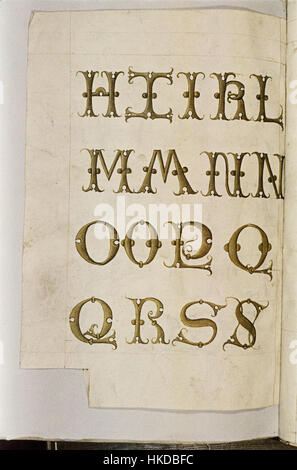 H I I K L
M M N N
O O P Q
Q R S S
alamy
Image ID: HKDBFC
www.alamy.com